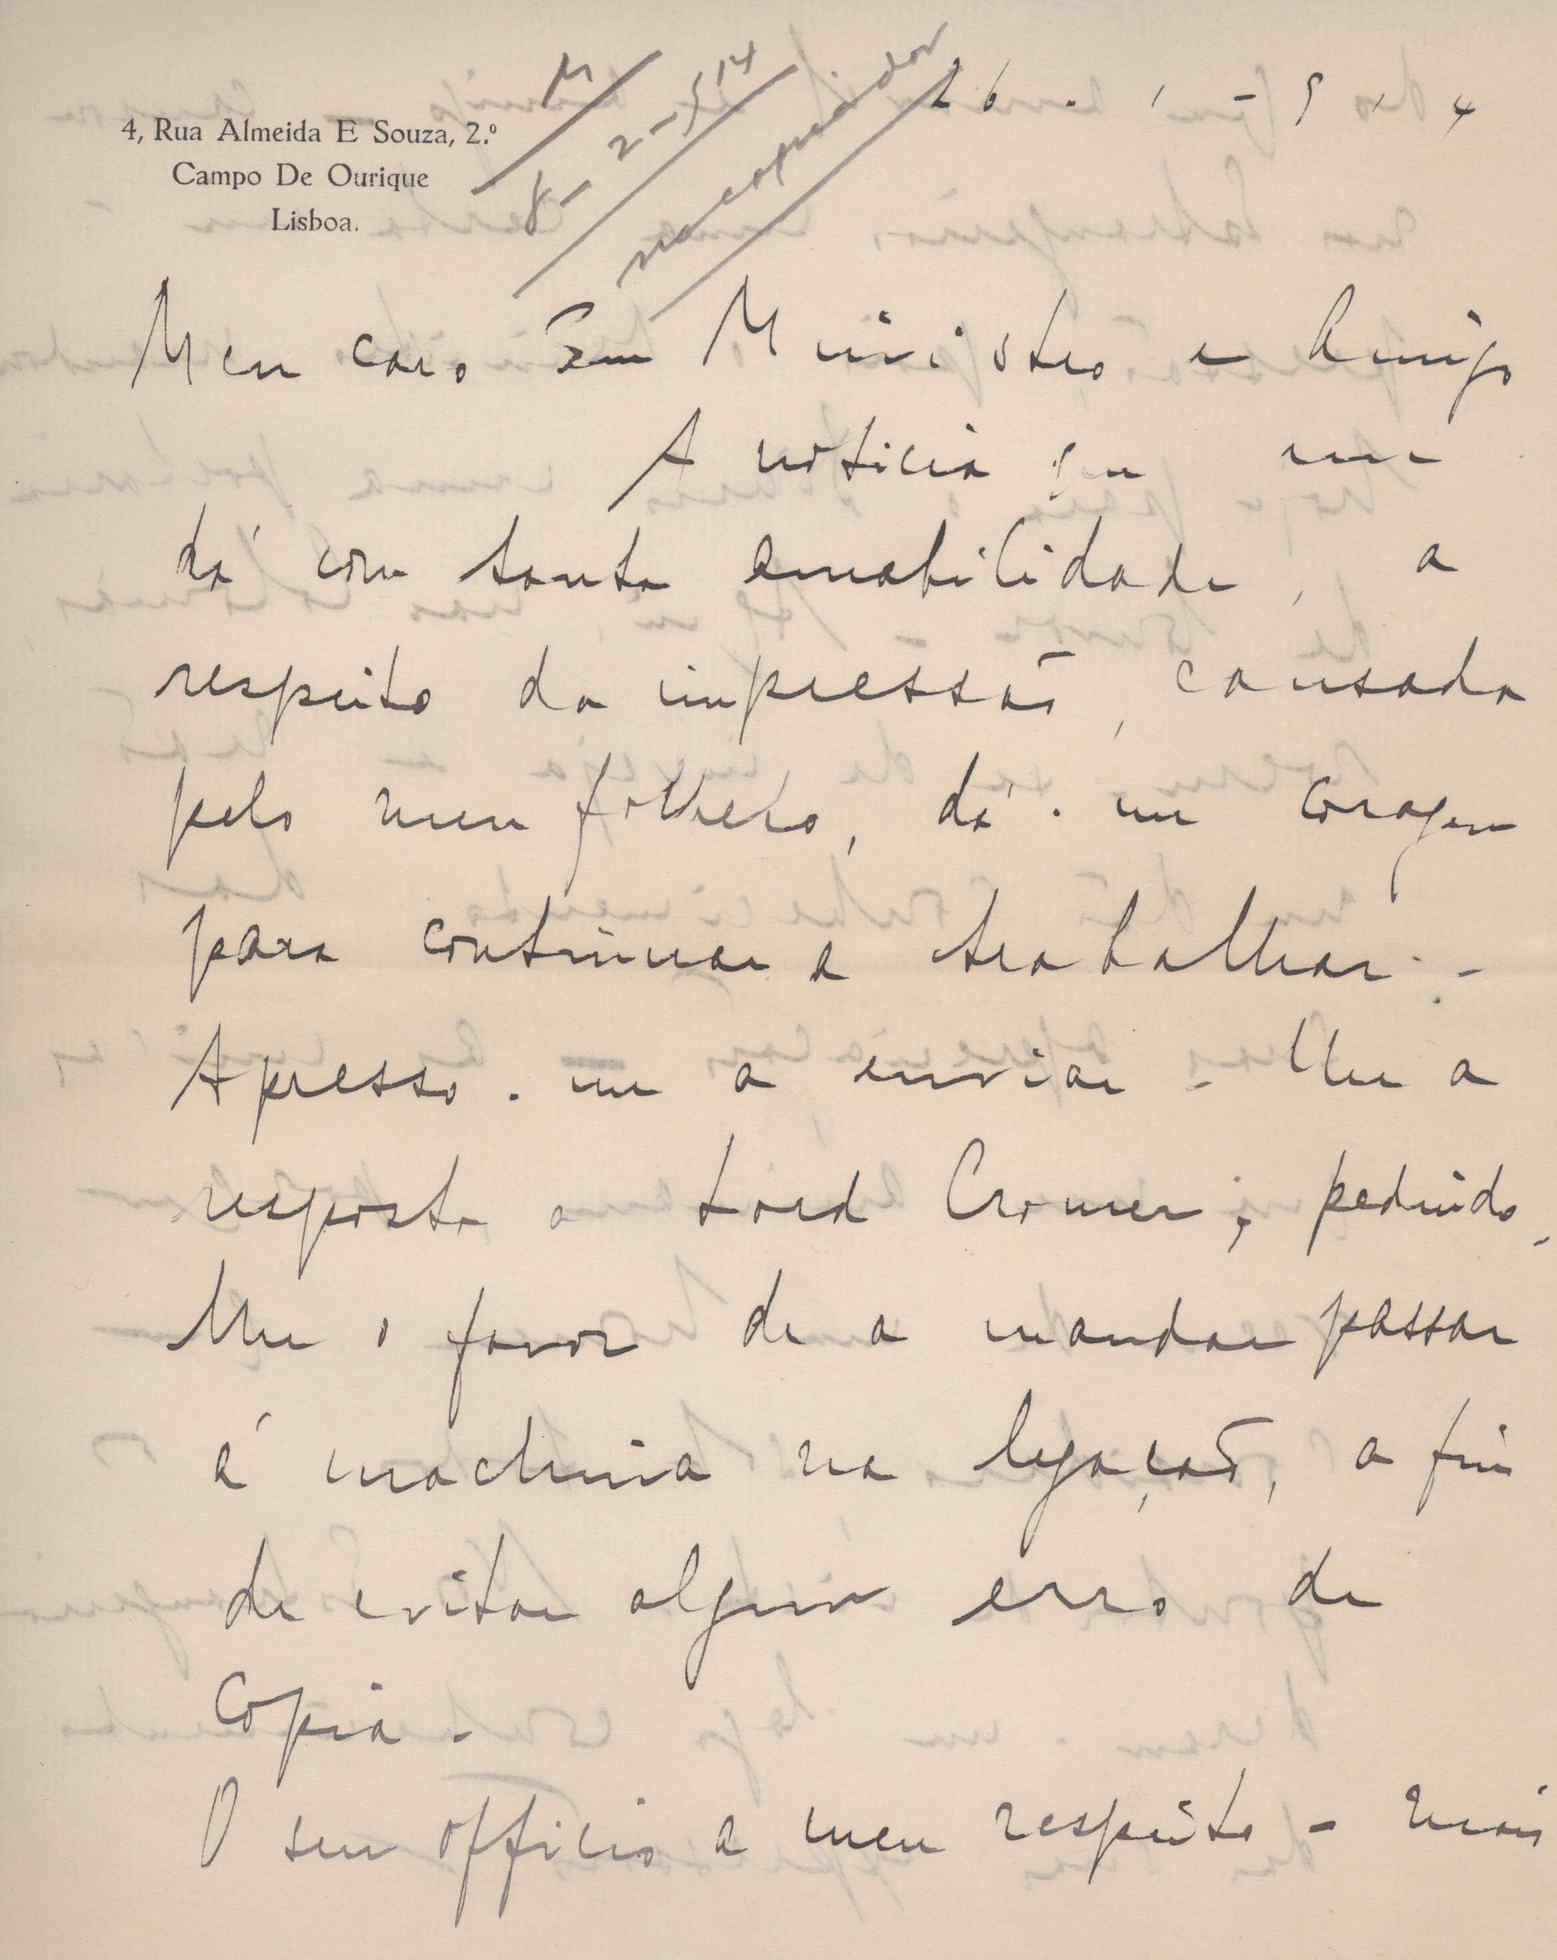 4, Rua Almeida E Souza, 2.º
Campo De Ourique
Lisboa.
R
8-2-914
no copiador
26-1-914
Meu caro Snr Ministro e Amigo
A noticia que me
dá com tanta amabilidade, a
respeito da impressão, causada
pelo meu folheto, dá-me coragem
para continuar a trabalhar. -
Apresso-me a enviar-lhe a
resposta a Lord Cromer, pedindo-
lhe o favor de a mandar passar
á machina na legação, a fim
de evitar algum erro de
Copia -
O seu officio a meu respeito - mais